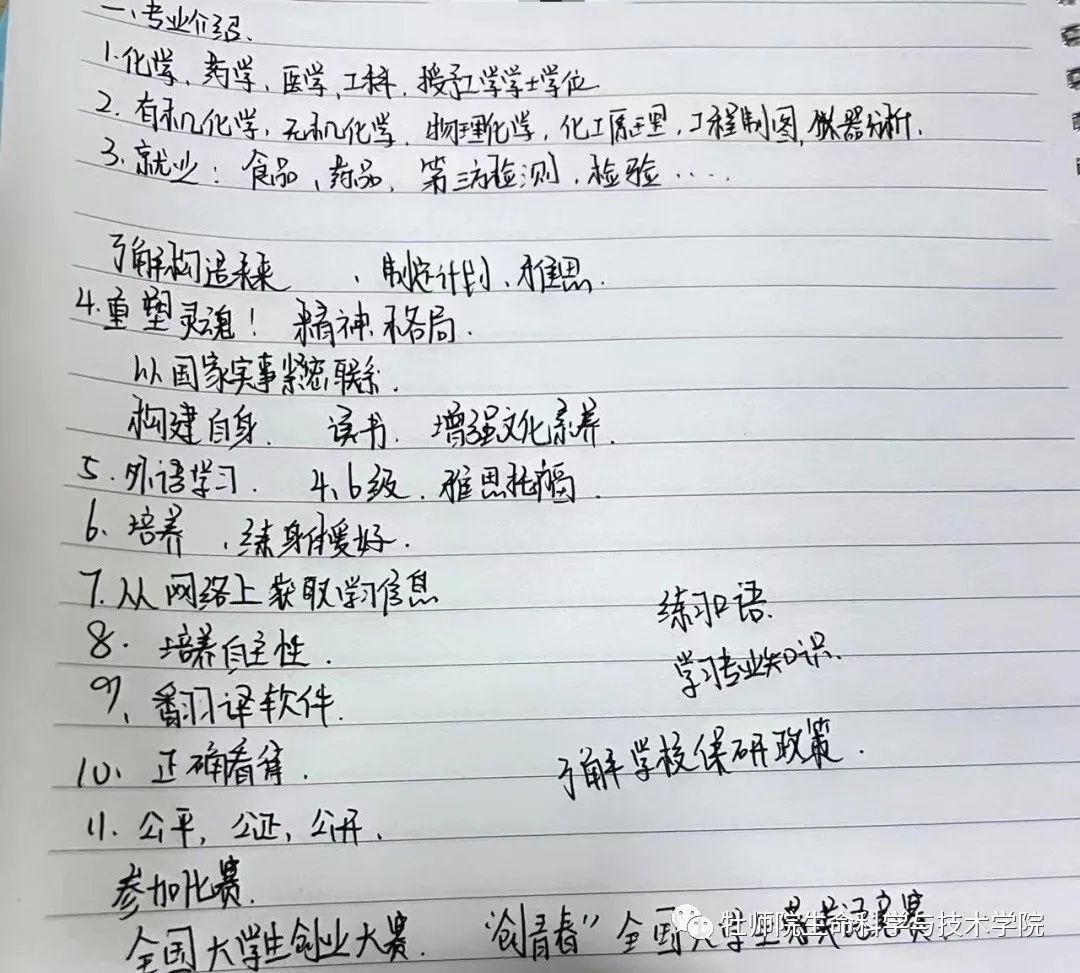 一、专业介绍.
1.化学、药学、医学、工科,授予工学学士学位
2. 有机化学,无机化学,物理化学,化工原理,工程制图,仪器分析.
3. 就业: 食品、药品,第三方检测,检验....
了解构造未来 、制定计划、雅思.
4.重塑灵魂! 精神、格局.
以国家实事紧密联系.
构建自身. 读书. 增强文化素养.
5.外语学习. 4、6级.雅思托福.
6、培养 、练身体爱好.
7.从网络上获取学习信息
练习口语.
8. 培养自主性.
学习专业知识.
9、翻译软件.
10、正确看待.
了解学校保研政策.
11. 公平,公正、公开、
参加比赛.
全国大学生创业大赛. “创青春”全国大学生 竞赛
牡师院生命科学与技术学院